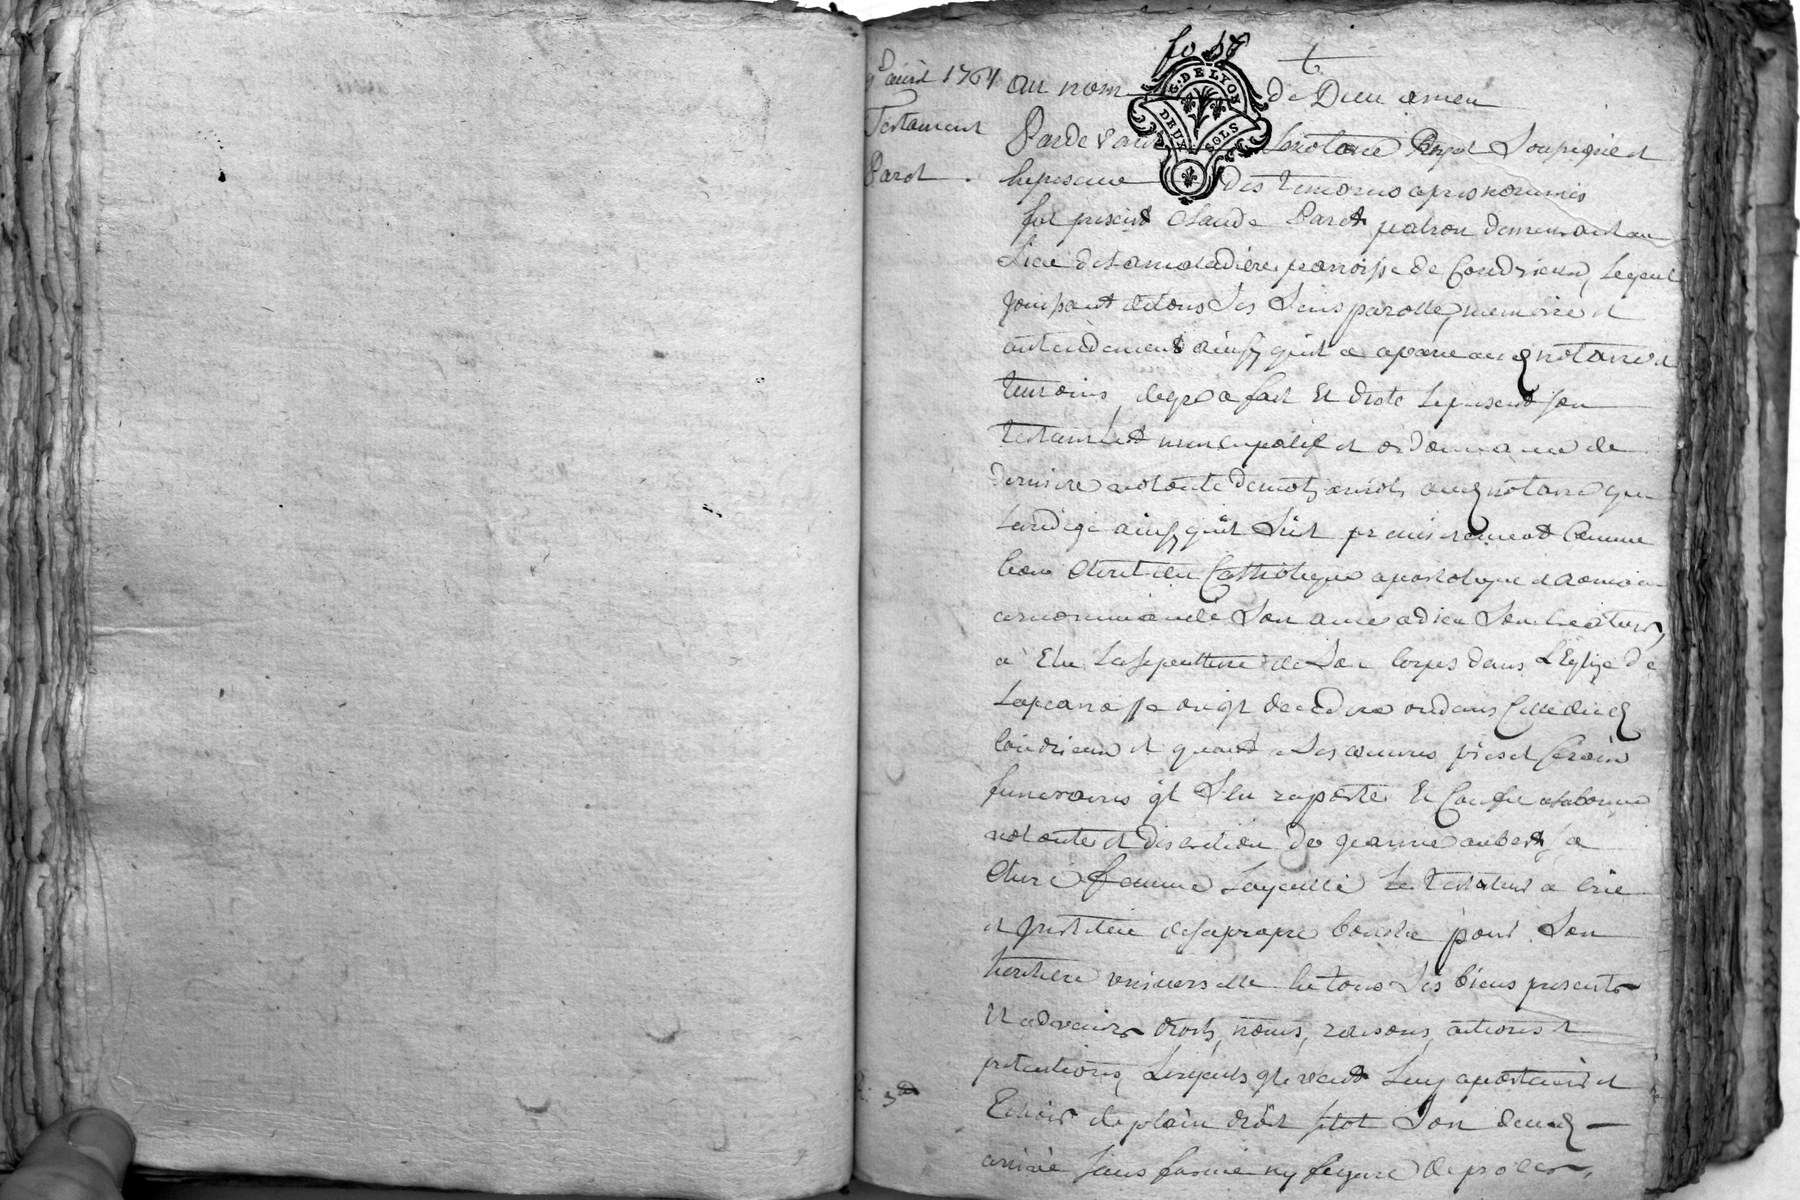 fo 57
9e avril 1764
Testament
Parot .
G. DE LYON
DEUX SOLS
au nom de Dieu amen
Parde vant Le notaire Royal Soussigné et
En presence des temoins apres nommés
fut present Claude Parot patron demeurant au
Lieu de La maladiere paroisse de Condrieux, Lequel
Jouissant de tous Ses Sens parolle, memoire et
entendement ainsy quil a aparu aud notaire et
temoins, de gré a fait Et dicté Le present Son
testament nuncupatif et ordonnance de
derniere volonte de mot a mot aud notaire qui
La redigé ainsy quil Suit premierement Comme
bon Chretien Catholique apostolique et Romain
a recommandé Son ame a dieu Son Createur,
a Elu La Sepulture de Son Corps dans L'Eglize de
La paroisse ou il decedera ou dans Celle dud
Condrieux et quant a Ses oeuvres pies et frais
funeraires il S'en raporte Et Confie a la bonne
volonte et discretion de jeanne aubert, Sa
Chere femme Laquelle Le testateur a Crée
et Institué de Sa propre bouche pour Son
heritiere universelle En tous Ses biens presents
Et advenir droits, noms, raisons, actions et
pretentions, Lesquels il veut Luy apartenir et
Echoir de plain droit sitot Son deced
arrivé Sans forme ny figure de proces,